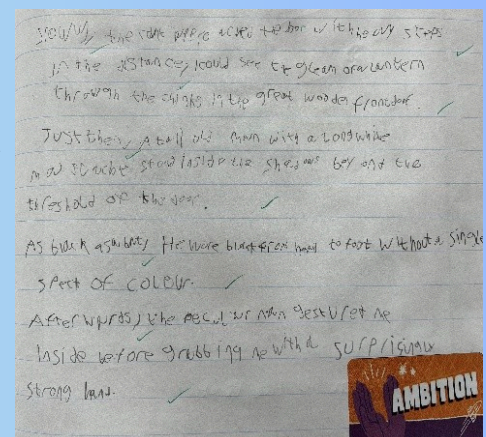 the
in the distance, I could see the gleam of a lantern
through the chinks in the great wooden front door
Just then, A tall old man with a Long white
moustache stood inside the shadows beyond the
threshold of the door.
As black as He wore black from head to foot without a single
speck of colour.
Afterwards, the peculiar man gestured me
Inside before grabbing me with a surprisingly
strong hand.
AMBITION